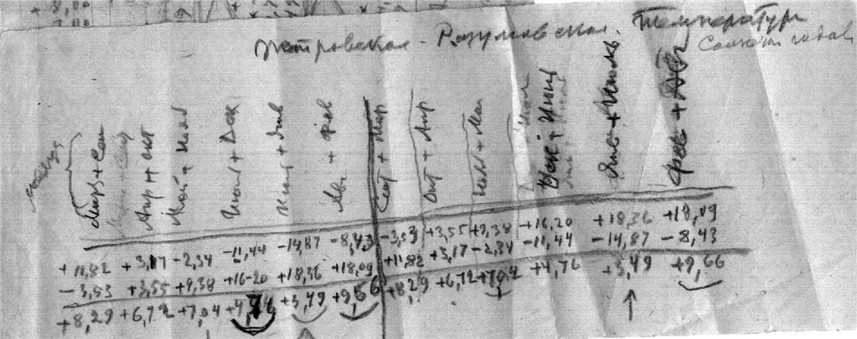 Петровская - Разумовская. Температур
месяц
Март + Сен
Апр + окт
Май + Ноя
Июн + Дек
Июл + Янв
Авг + Фев
Сент + Мар
Окт + Апр
Ноя + Май
Дек + Июн
Янв + Июль
Фев + Авг
+11,82 +3,17 -2,34 -11,44 -14,87 -8,43 -3,53 +3,55 +9,38 +16,20 +18,36 +18,09
-3,53 +3,55 +9,38 +16-20 +18,36 +18,09 +11,82 +3,17 -2,34 -11,44 -14,87 -8,43
+8,29 +6,72 +7,04 +4,76 +3,49 +9,66 +8,29 +6,72 +7,04 +4,76 +3,49 +9,66